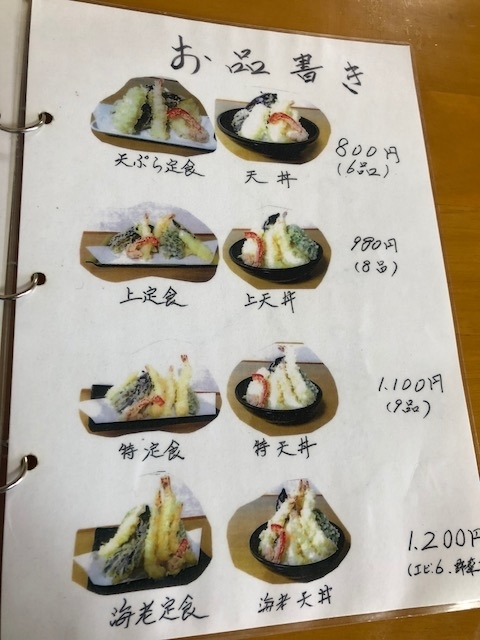 お品書き
天ぷら定食 天丼 800円
(6品)
上定食 上天丼 980円
(8品)
特定食 特天丼 1.100円
(9品)
海老定食 海老天丼 1.200円
(エビ.6、野菜